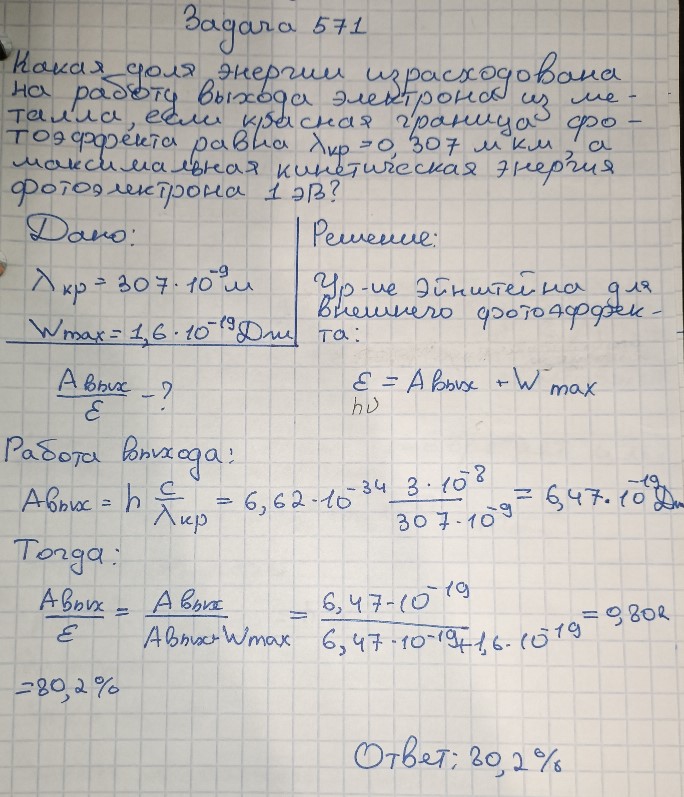 Задача 571
Какая доля энергии израсходована
на работу выхода электрона из ме-
талла, если красная граница фо-
тоэффекта равна λкр = 0,307 мкм, а
максимальная кинетическая энергия
фотоэлектрона 1 эВ?
Дано:
λкр = 307·10⁻⁹ м
Wmax = 1,6·10⁻¹⁹ Дж
Aвых/ε - ?
Решение:
Ур-ие Эйнштейна для
внешнего фотоэффек-
та:
ε = Aвых + Wmax
hν
Работа выхода:
Aвых = h c/λкр = 6,62·10⁻³⁴ 3·10⁻⁸/307·10⁻⁹ = 6,47·10⁻¹⁹ Дж
Тогда:
Aвых/ε = Aвых/Aвых+Wmax = 6,47·10⁻¹⁹/6,47·10⁻¹⁹+1,6·10⁻¹⁹ = 0,802
=80,2%
Ответ: 80,2%